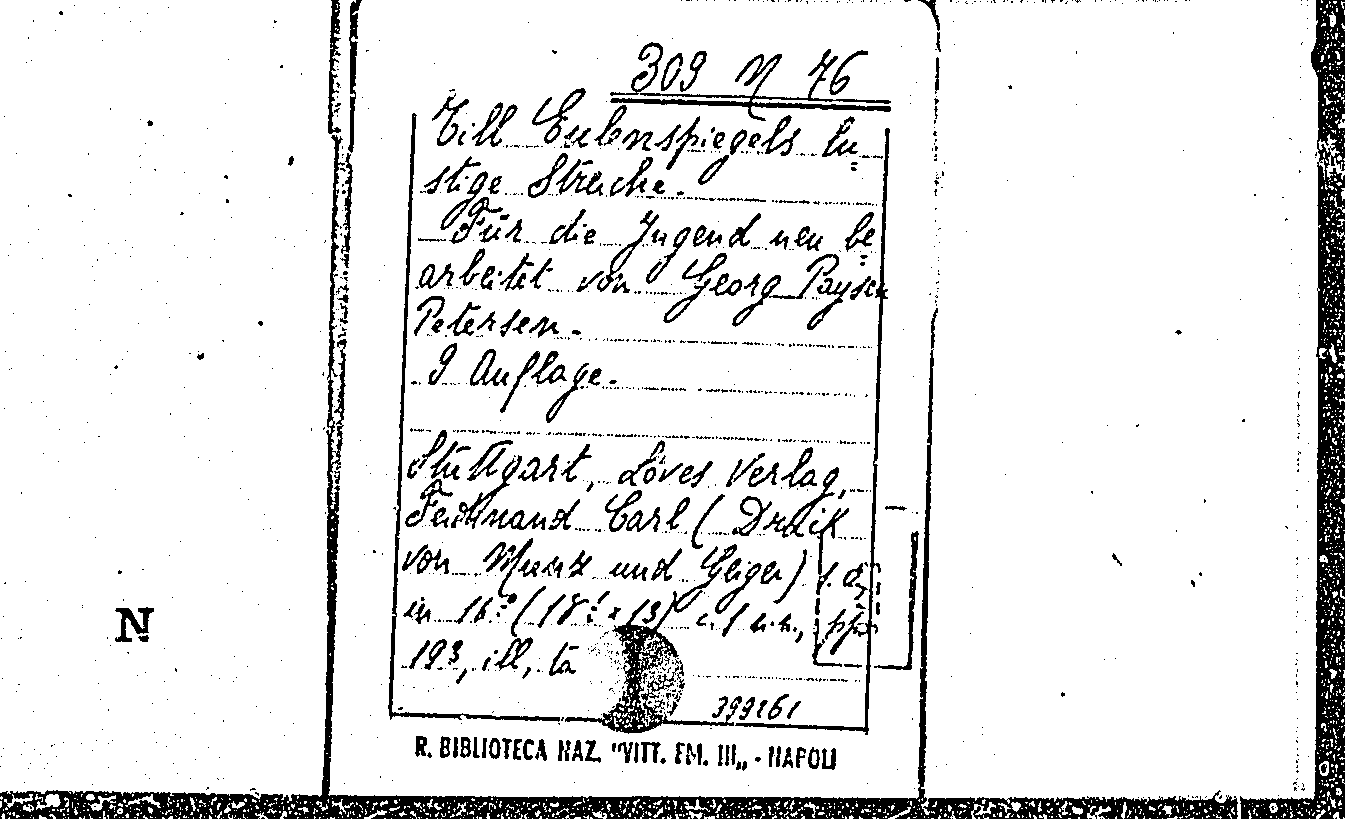 309 N 76
Till Eulenspiegels lu
stige Streiche.
Für die Jugend neu be
arbeitet von Georg Paysen
Petersen.
9 Auflage.
Stuttgart, Löves Verlag,
Ferdinand Carl (Druck
von Munz und Geiger) s. d,
in 16º (18! x 13) c. 1 n.n., pp.
193, ill, ta
399261
R. BIBLIOTECA NAZ. "VITT. EM. III„ - NAPOLI
N